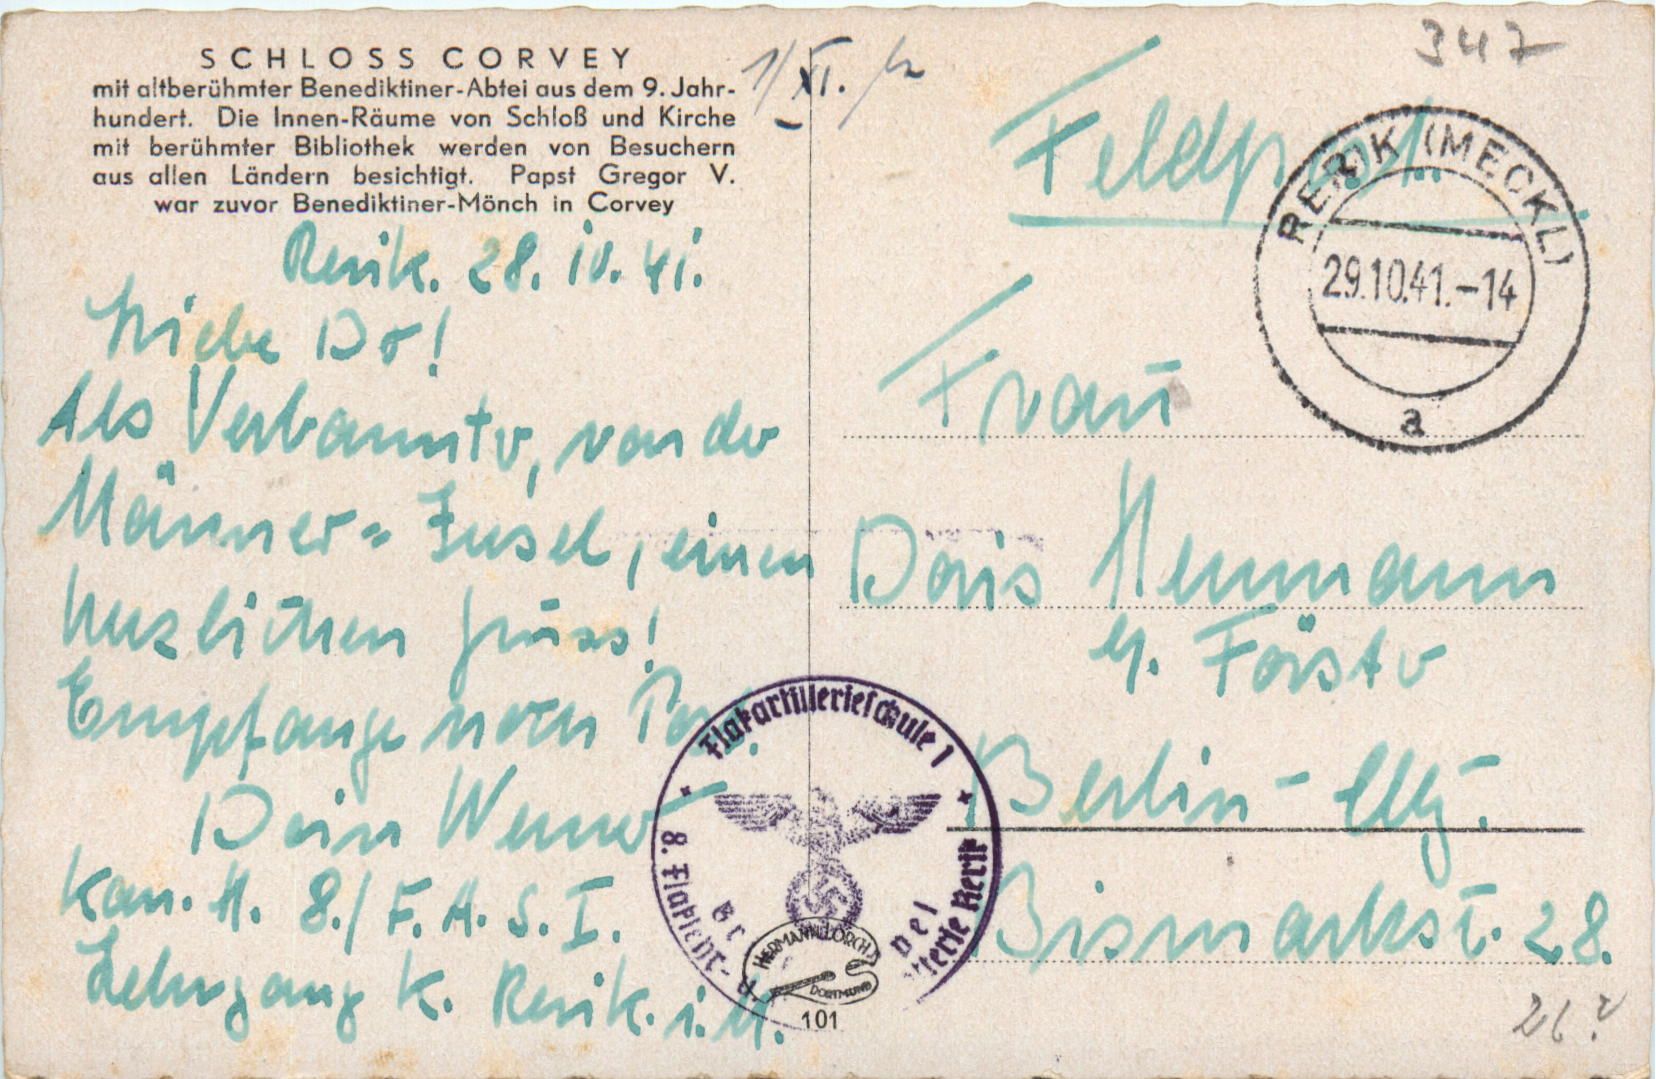 SCHLOSS CORVEY
mit altberühmter Benediktiner-Abtei aus dem 9. Jahr-
hundert. Die Innen-Räume von Schloß und Kirche
mit berühmter Bibliothek werden von Besuchern
aus allen Ländern besichtigt. Papst Gregor V.
war zuvor Benediktiner-Mönch in Corvey
Rerik. 28. 10. 41.
Liebe Do!
Als Verbannter, von der
Männer-Insel, einen
herzlichen Gruss!
Empfange noch Post.
Dein Werner
Kan. H. 8./F.A.S.I.
Lehrgang K. Rerik. i. M.
1/XI.
347
Feldpost
RERIK (MECKL)
29.10.41.-14
a
Frau
Doris
b. Förster
Berlin-Chbg.
Bismarkst. 28.
Flakartillerieschule 1
8. Flaklehr- u.
tterie Rerik
HERMANN LORCH
DORTMUND
101